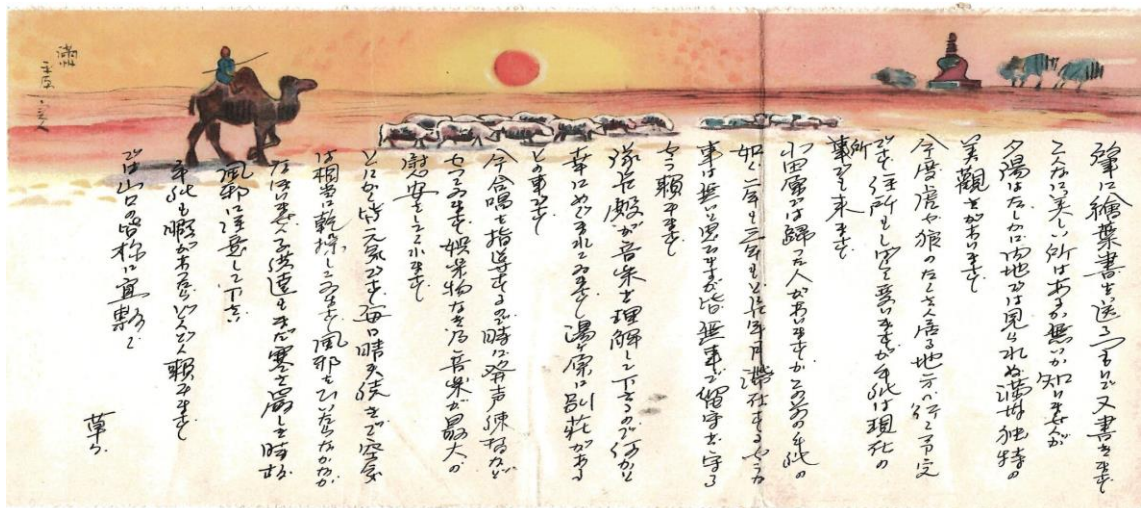 肇に繪葉書を送るついでに又書きます
こんなに美しい所はあるか無いか知りませんが
夕陽はたしかに内地では見られぬ満州独特の
美観があります
今度虎や狼のたくさん居る地方か行く予定
です 住所も少し変りますが手紙は現在の
所でも来ます
小田原では歸った人がありますがこの前の手紙の
如く二年も三年もと長年月滞在する
事は無いと思ひますが皆無事で留守を守る
頼みます
隊長殿が音楽を理解して下さるので何かと
幸にめぐまれてゐます 湯ヶ原に別荘がある
との事です
今合唱を指導する時に発声練習など
やってゐます 娯楽物なき為音楽が最大の
慰安をして来ます
とにかく皆元気です 毎日晴天続きで空気
は相当に乾燥してゐます 風邪をひいたらなかなか
なほりません 洪達もまだ寒さ厳しき時故
風邪に注意して下さい
手紙も暇があったらどんどん頼みます
では山口の皆様に宜敷く
草々
満州